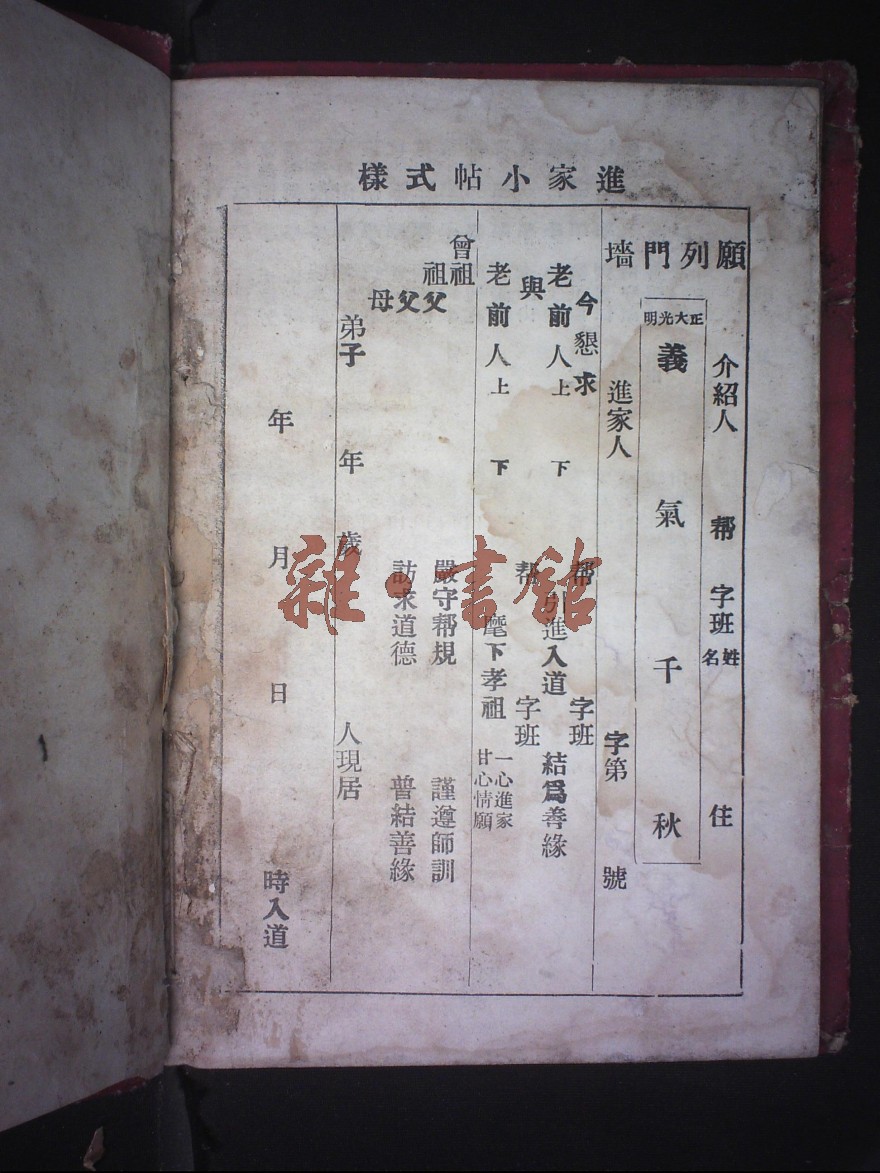 進家小帖式樣
願列門墻
介紹人 帮 字班 姓名 住
正大光明
義氣千秋
進家人 字第 號
今懇求
老前人上 下 帮 字班
引進入道 結爲善緣
與
老前人上 下 帮 字班
麾下孝祖 一心進家 甘心情願
曾祖
祖父
父
母
嚴守帮規 謹遵師訓
訪求道德 普結善緣
弟子 年 歲 人現居
年 月 日 時入道
雜·書館